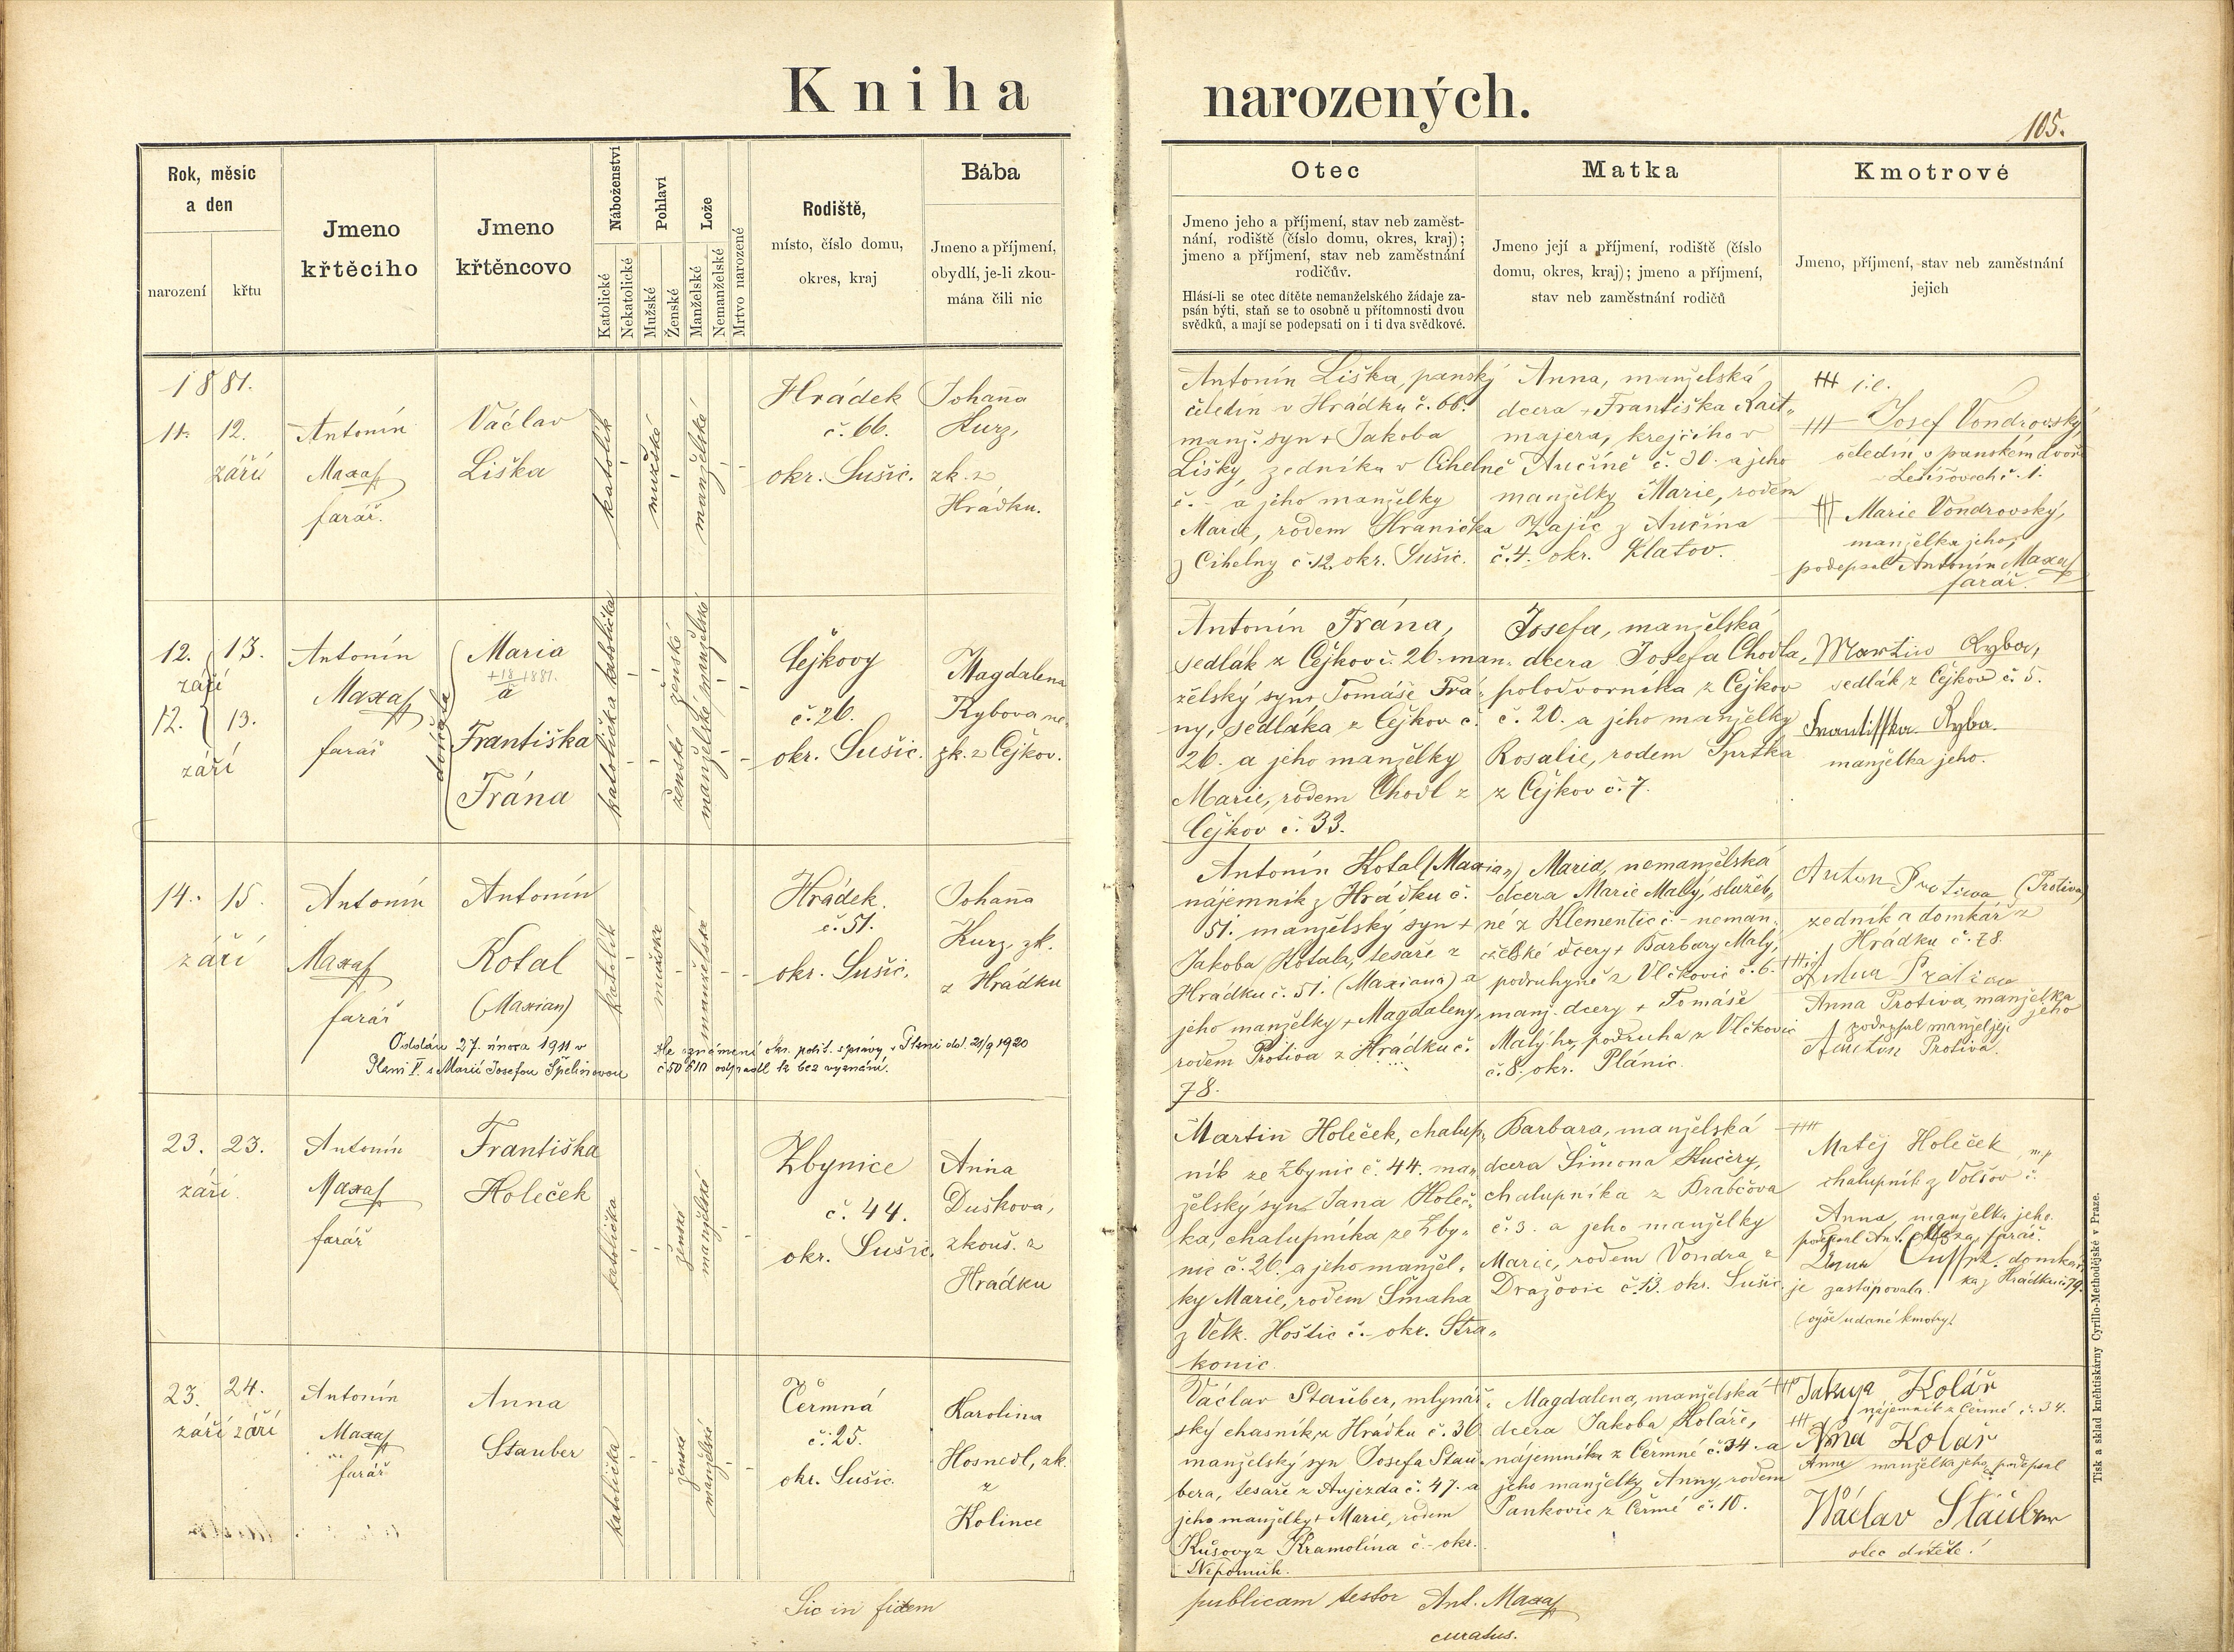 Kniha narozených.
105.
Rok, měsíc a den
narození
křtu
Jmeno křtěcího
Jmeno křtěncovo
Náboženství
Katolické
Nekatolické
Pohlaví
Mužské
Ženské
Lože
Manželské
Nemanželské
Mrtvo narozené
Rodiště,
místo, číslo domu,
okres, kraj
Bába
Jmeno a příjmení,
obydlí, je-li zkou-
mána čili nic
Otec
Jmeno jeho a příjmení, stav neb zaměst-
nání, rodiště (číslo domu, okres, kraj);
jmeno a příjmení, stav neb zaměstnání
rodičův.
Hlásí-li se otec dítěte nemanželského žádaje za-
psán býti, staň se to osobně u přítomnosti dvou
svědků, a mají se podepsati on i ti dva svědkové.
Matka
Jmeno její a příjmení, rodiště (číslo
domu, okres, kraj); jmeno a příjmení,
stav neb zaměstnání rodičů
Kmotrové
Jmeno, příjmení, stav neb zaměstnání
jejich
1881.
11. 12.
září
Antonín
Maxa
farář.
Václav
Liška
katolík
mužské
manželské
Hrádek
č. 66.
okr. Sušic.
Johana
Kurz,
zk. z
Hrádku.
Antonín Liška, panský
čeledín v Hrádku č. 66.
manž. syn + Jakoba
Lišky, zedníka v Cihelně
č. - a jeho manželky
Marie, rodem Hranička
z Cihelny č. 12. okr. Sušic.
Anna, manželská
dcera + Františka Rait„
majera, krejčího v
Aučíně č. 30. a jeho
manželky Marie, rodem
Zajíc z Aučína
č. 4. okr. Klatov.
+++ i.e.
+++ Josef Vondrovský,
čeledín v panském dvoře
č. 1.
+++ Marie Vondrovský,
manželka jeho,
podepsal Antonín Maxa
farář.
12. 13.
září
12. 13.
září
Antonín
Maxa
farář
dvojčata
Maria
a
Františka
Frána
katolička katolička
ženské ženské
manželské manželské
Čejkovy
č. 26.
okr. Sušic.
Magdalena
Rybova ne„
zk. z Čejkov.
Antonín Frána,
sedlák z Čejkov č. 26. man„
želský syn Tomáše Frá„
ny, sedláka z Čejkov č.
26. a jeho manželky
Marie, rodem Chodl z
Čejkov č. 33.
Josefa, manželská
dcera Josefa Chodla,
polodvorníka z Čejkov
č. 20. a jeho manželky
Rosalie, rodem
z Čejkov č. 7.
Martin Ryba,
sedlák z Čejkov č. 5.
Frantisska Ryba.
manželka jeho.
14. 15.
září
Antonín
Maxa
farář
Antonín
Kotal
(Maxian)
katolík
mužské
manželské
Hrádek.
č. 51.
okr. Sušic.
Johana
Kurz, zk.
z Hrádku
Oddán 27. února 1911 v
Plzni V. s Marií Josefou Špelinovou
Dle oznámení okr. polit. správy v Plzni dd. 21/9 1920
č 50610 odpadl k bez vyznání.
Antonín Kotal (Maxian)
nájemník z Hrádku č.
51. manželský syn +
Jakoba Kotala, tesaře z
Hrádku č. 51. (Maxiana) a
jeho manželky + Magdaleny,
rodem Protiva z Hrádku č.
78.
Maria, nemanželská
dcera Marie Malý, služeb„
né z Klementic č. - neman„
želské dcery + Barbary Malý,
podruhyně z Vlčkovic č. 6.
manž. dcery + Tomáše
Malýho, podruha z Vlčkovic
č. 8. okr. Plánic.
Anton Protiwa (Protiva)
zedník a domkář z
Hrádku č. 78.
Anna Protiva, manželka
jeho
podepsal manžel její
Anton Protiva.
23. 23.
září
Antonín
Maxa
farář
Františka
Holeček
katolička
ženské
manželské
Zbynice
č. 44.
okr. Sušic.
Anna
Duškova,
zkouš. z
Hradku
Martin Holeček, chalup„
ník ze Zbynic č. 44. man„
želský syn Jana Holeč„
ka, chalupníka ze Zby„
nic č. 26. a jeho manžel„
ky Marie, rodem Smaha
z Velk. Hoštic č. - okr. Stra„
konic
Barbara, manželská
dcera Šimona Kučery,
chalupníka z Brabčova
č. 3. a jeho manželky
Marie, rodem Vondra z
Dražovic č. 13. okr. Sušic.
Matěj Holeček m.p.
chalupník z Volšov č.
Anna, manželka jeho.
podepsal Ant. Maxa, farář.
domkář„
ka z Hrádku č. 79.
je zastupovala.
(výše udané kmotry)
23. 24.
září září
Antonín
Maxa
farář
Anna
Stauber
katolička
ženské
manželské
Čermná
č. 25.
okr. Sušic.
Karolina
Hosnedl, zk.
z
Kolince
Václav Stauber, mlynář„
ský chasník z Hrádku č. 36
manželský syn Josefa Stau„
bera, tesaře z Aujezda č. 47. a
jeho manželky + Marie, rodem
Kušovy z Kramolína č. - okr.
Nepomuk.
Magdalena, manželská
dcera Jakoba Koláře,
nájemníka z Čermné č. 34. a
jeho manželky Anny, rodem
Pankovic z Čermé č. 10.
+++ Jakup Kolář
nájemník z Čermé č. 34.
+++ Kolář
Anna manželka jeho, podepsal
Wáclav Stauber
otec dítěte.
Sic in fidem publicam testor Ant. Maxa
curatus.
Tisk a sklad knihtiskárny Cyrillo-Methodějské v Praze.